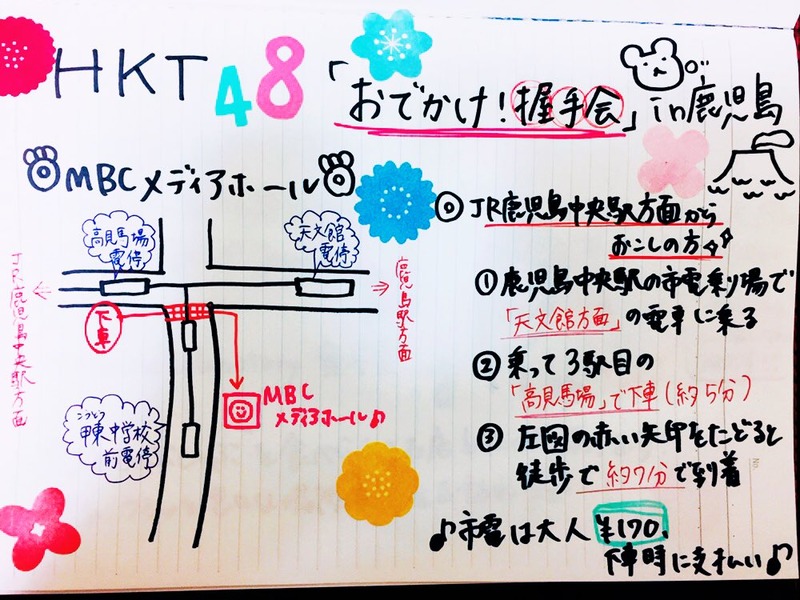 HKT48
「おでかけ！握手会」in鹿児島
MBCメディアホール
高見馬場
電停
天文館
電停
JR鹿児島中央駅方面
鹿児島駅方面
下車
MBC
メディアホール♪
こうとう
甲東中学校
前電停
◎JR鹿児島中央駅方面から
おこしの方
①鹿児島中央駅の市電乗り場で
「天文館方面」の電車に乗る
②乗って3駅目の
「高見馬場」で下車(約5分)
③左図の赤い矢印をたどると
徒歩で約7分で到着
♪市電は大人¥170、
下車時に支払い♪